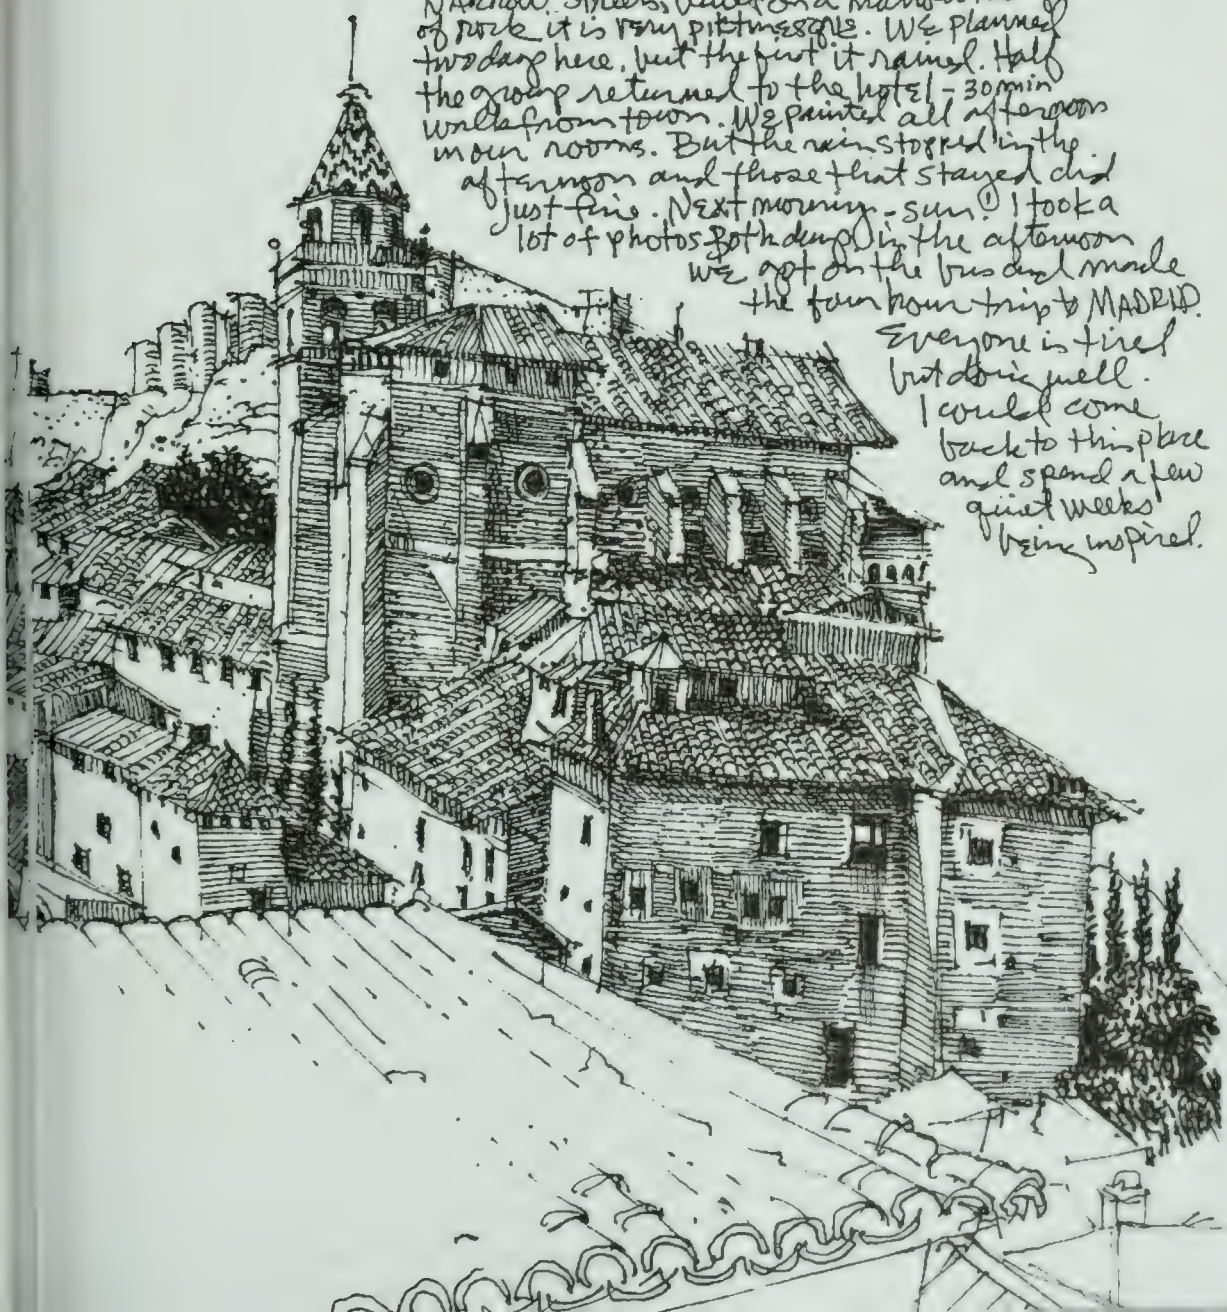 NARROW streets, built on a narrow
of rock it is very pikturesque. We planned
two days here, but the first it rained. Half
the group returned to the hotel - 30 min
walk from town. We painted all afternoon
in our rooms. But the rain stopped in the
afternoon and those that stayed did
just fine. Next morning - sun! I took a
lot of photos both days. in the afternoon
we got on the bus and made
the four hour trip to MADRID.
Everyone is tired
but doing well.
I could come
back to this place
and spend a few
quiet weeks
being inspired.